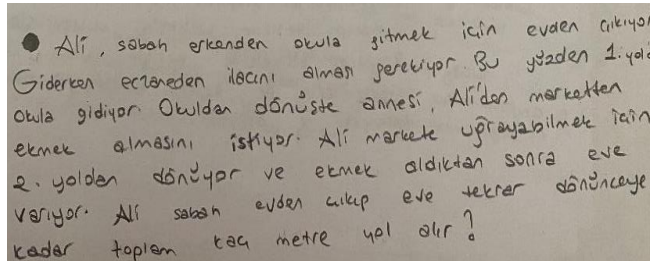 Ali, sabah erkenden okula gitmek için evden çıkıyor
Giderken eczaneden ilacını alması gerekiyor. Bu yüzden 1. yol
okula gidiyor. Okuldan dönüşte annesi, Ali'den marketten
ekmek almasını istiyor. Ali markete uğrayabilmek için
2. yoldan dönüyor ve ekmek aldıktan sonra eve
varıyor. Ali sabah evden çıkıp eve tekrar dönünceye
kadar toplam kaç metre yol alır?